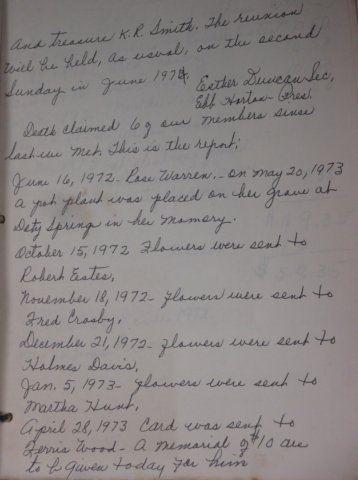 And treasure K.R. Smith. The reunion
will be held, as usual, on the second
Sunday in June 1974.
Esther Duncan Sec,
Ebb Horton - Pres.
Death claimed 6 of our members since
last we met. This is the report;
June 16, 1972 - Rose Warren. - on May 20, 1973
a pot plant was placed on her grave at
Doty Spring in her Momory.
October 15, 1972 Flowers were sent to
Robert Estes,
November 18, 1972 - Flowers were sent to
Fred Crosby,
December 21, 1972 - Flowers were sent to
Holmes Davis,
Jan. 5, 1973 - Flowers were sent to
Martha Hunt,
April 28, 1973 Card was sent to
Ferris Wood - A memorial of $10 are
to b Given today For him